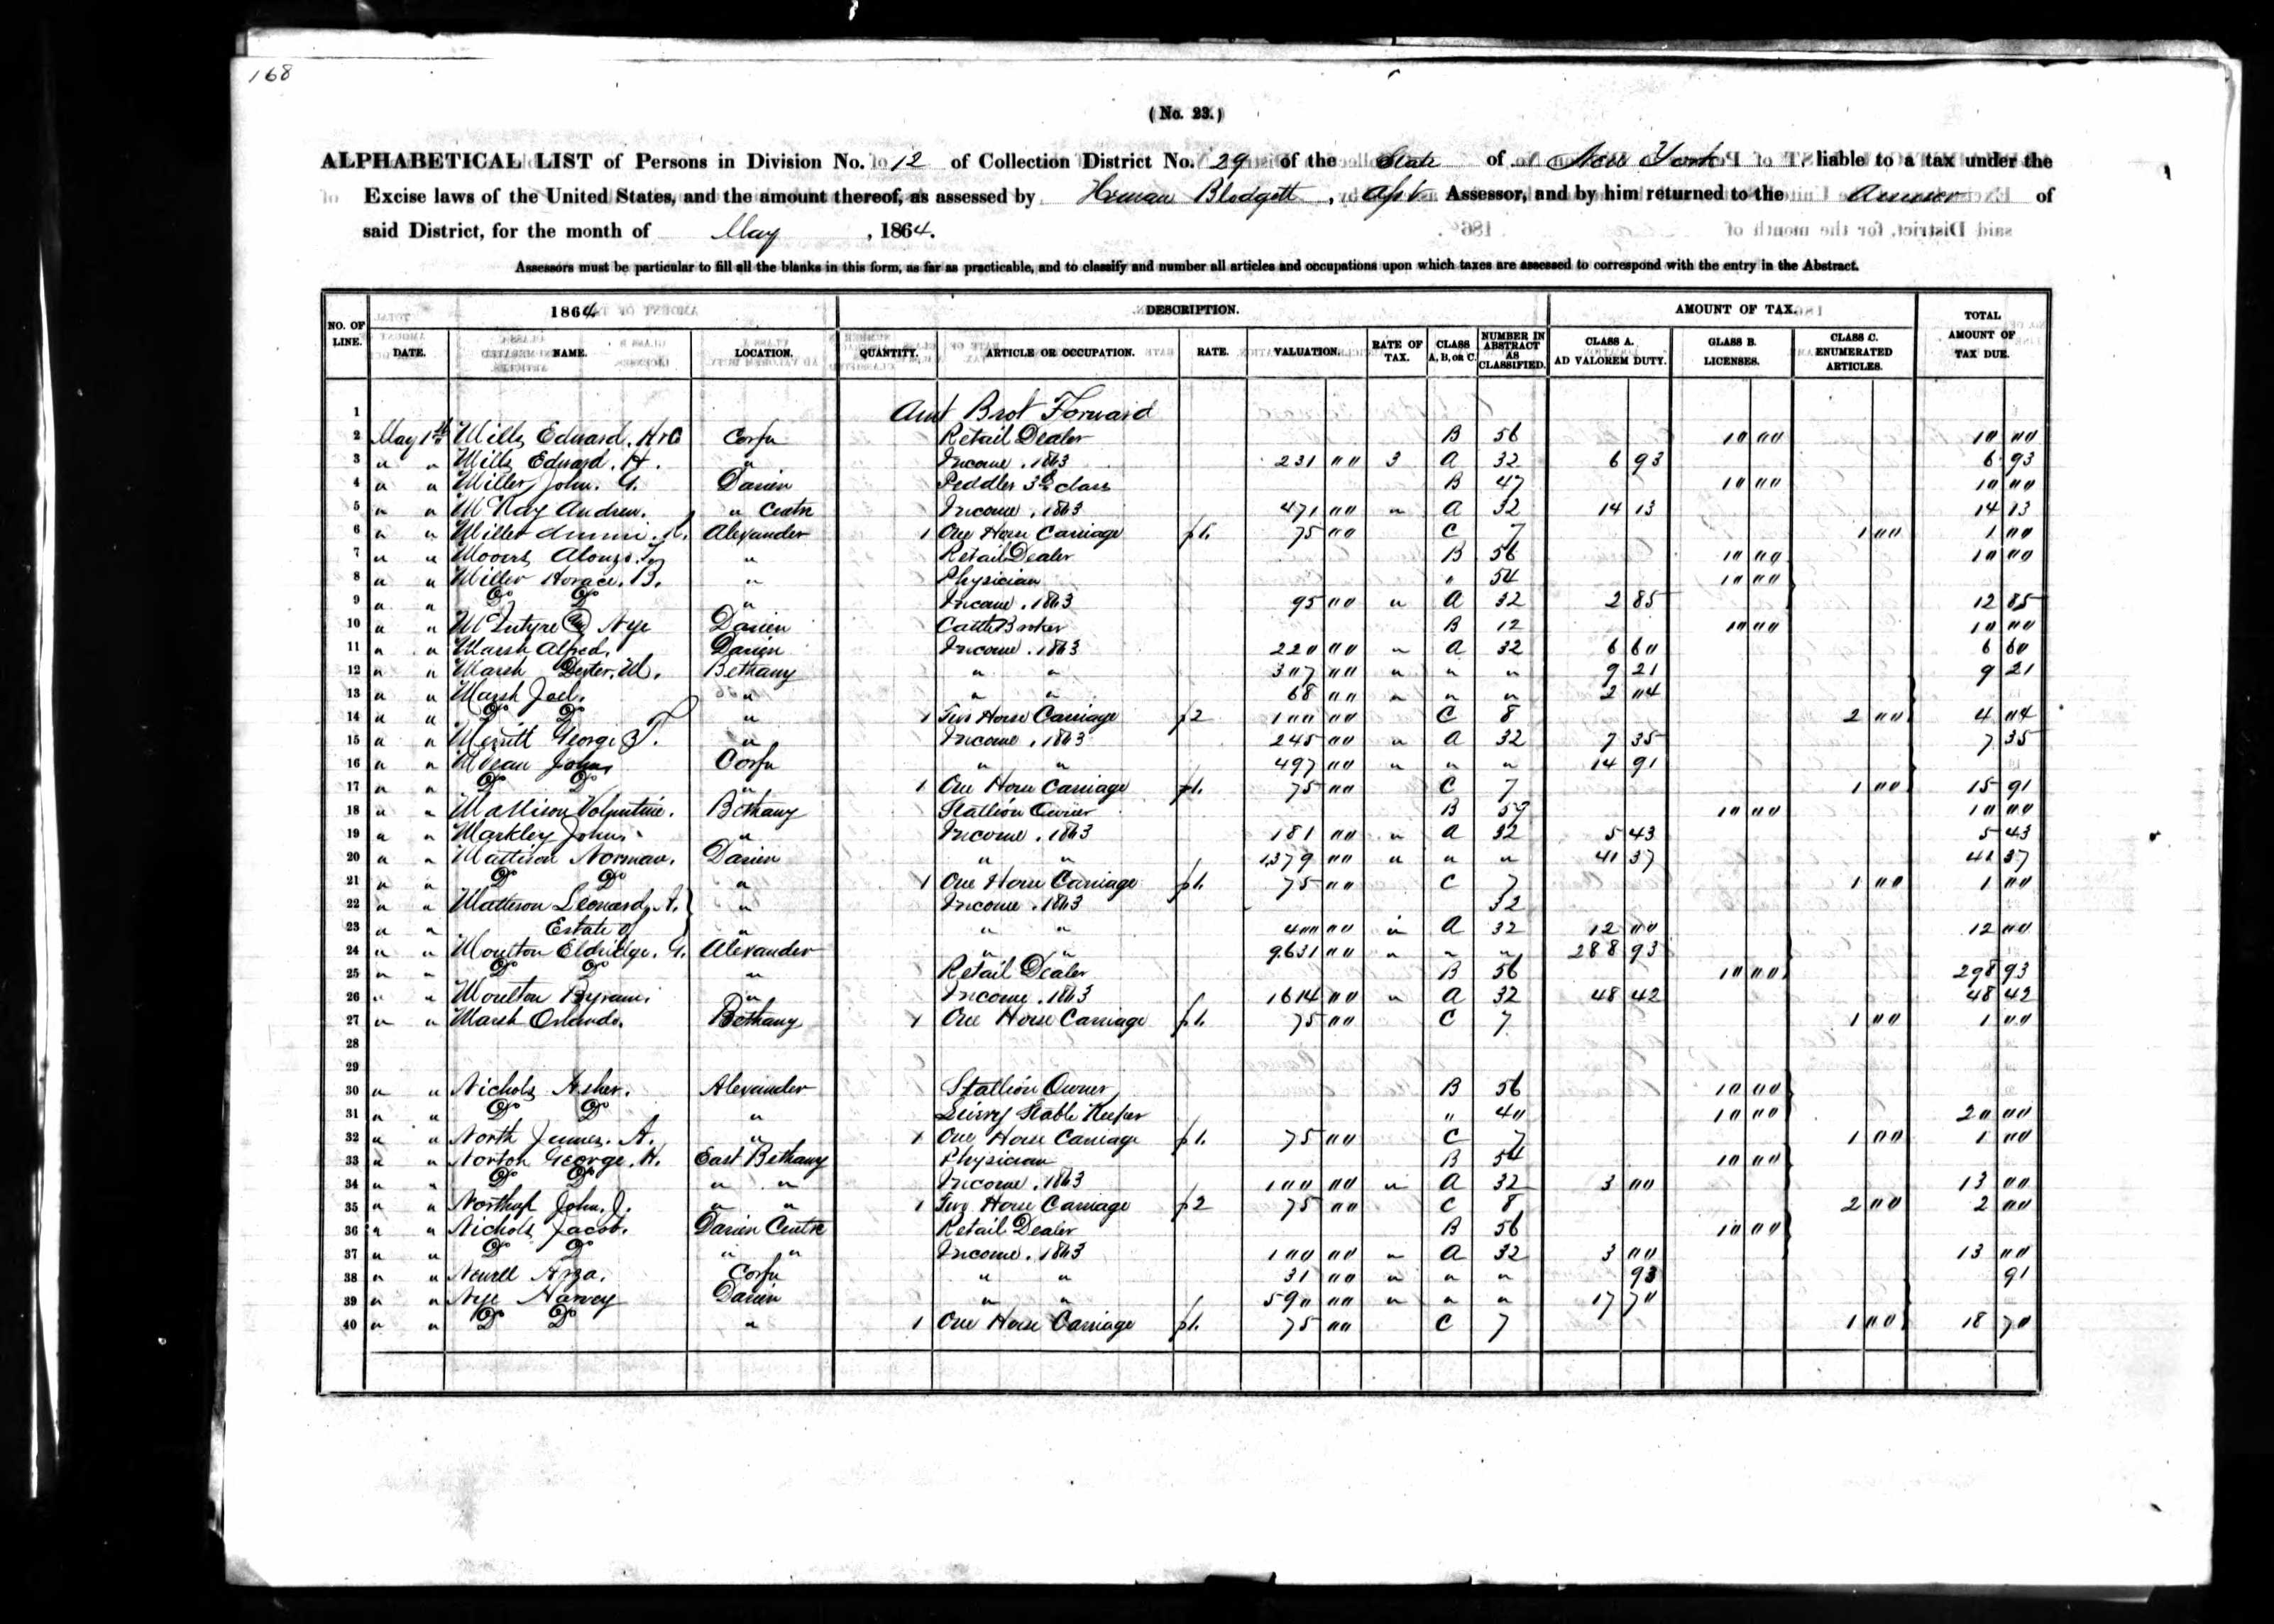 168
( No. 23.)
ALPHABETICAL LIST of Persons in Division No. 12 of Collection District No. 29 of the State of New York liable to a tax under the
Excise laws of the United States, and the amount thereof, as assessed by Heman Blodgett, Asst. Assessor, and by him returned to the Assessor of
said District, for the month of May, 1864.
Assessors must be particular to fill all the blanks in this form, as far as practicable, and to classify and number all articles and occupations upon which taxes are assessed to correspond with the entry in the Abstract.
1864 DESCRIPTION. AMOUNT OF TAX.
NO. OF LINE. DATE. NAME. LOCATION. QUANTITY. ARTICLE OR OCCUPATION. RATE. VALUATION. RATE OF TAX. CLASS A, B, OR C. NUMBER IN ABSTRACT AS CLASSIFIED. CLASS A. AD VALOREM DUTY. CLASS B. LICENSES. CLASS C. ENUMERATED ARTICLES. TOTAL AMOUNT OF TAX DUE.
1 Amt Brot Forward
2 May 1st Mills Edward. H & Co Corfu Retail Dealer B 56 10 00 10 00
3 " " Mills Edward. H. " Income. 1863 231 00 3 A 32 6 93 6 93
4 " " Miller John. G. Darien Peddler 3d class B 47 10 00 10 00
5 " " McKay Andrew. " Centre Income. 1863 471 00 " A 32 14 13 14 13
6 " " Miller Alexander 1 One Horse Carriage 75 00 C 7 1 00 1 00
7 " " Movers Alonzo " Retail Dealer B 56 10 00 10 00
8 " " Miller Horace. B. " Physician " 54 10 00
9 " " Do Do " Income. 1863 95 00 " A 32 2 85 12 85
10 " " McIntyre & Nye Darien Cattle Broker B 12 10 00 10 00
11 " " Marsh Alfred. Darien Income. 1863 220 00 " A 32 6 60 6 60
12 " " Marsh Dexter. M. Bethany " " 307 00 " " " 9 21 9 21
13 " " Marsh Joel. " " " 68 00 " " " 2 04
14 " " Do Do " 1 Two Horse Carriage 2 100 00 C 8 2 00 4 04
15 " " Merritt George T. " Income. 1863 245 00 " A 32 7 35 7 35
16 " " John Corfu " " 497 00 " " " 14 91
17 " " Do Do " 1 One Horse Carriage 75 00 C 7 1 00 15 91
18 " " Mattison Voluntine. Bethany Stallion Owner B 59 10 00 10 00
19 " " Markley John. " Income. 1863 181 00 " A 32 5 43 5 43
20 " " Mattison Norman. Darien " " 1379 00 " " " 41 37 41 37
21 " " Do Do " 1 One Horse Carriage 75 00 C 7 1 00 1 00
22 " " Matteson Leonard. A. " Income. 1863 32
23 " " Estate of " " " 400 00 " A 32 12 00 12 00
24 " " Moulton Eldridge. G. Alexander " " 9631 00 " " " 288 93
25 " " Do Do " Retail Dealer B 56 10 00 298 93
26 " " Moulton Byram. " Income. 1863 1614 00 " A 32 48 42 48 42
27 " " Marsh Orlando. Bethany 1 One Horse Carriage 75 00 C 7 1 00 1 00
28
29
30 " " Nichols Asher. Alexander Stallion Owner B 56 10 00
31 " " Do Do " Livery Stable Keeper " 40 10 00 20 00
32 " " North James. A. " 1 One Horse Carriage 75 00 C 7 1 00 1 00
33 " " Norton George. H. East Bethany Physician B 54 10 00
34 " " Do Do " " Income. 1863 100 00 " A 32 3 00 13 00
35 " " Northup John. J. " " 1 Two Horse Carriage 2 75 00 C 8 2 00 2 00
36 " " Nichols Jacob. Darien Centre Retail Dealer B 56 10 00
37 " " Do Do " " Income. 1863 100 00 " A 32 3 00 13 00
38 " " Newell Arza. Corfu " " 31 00 " " " 93 91
39 " " Nye Harvey Darien " " 590 00 " " " 17 70
40 " " Do Do " 1 One Horse Carriage 75 00 C 7 1 00 18 70